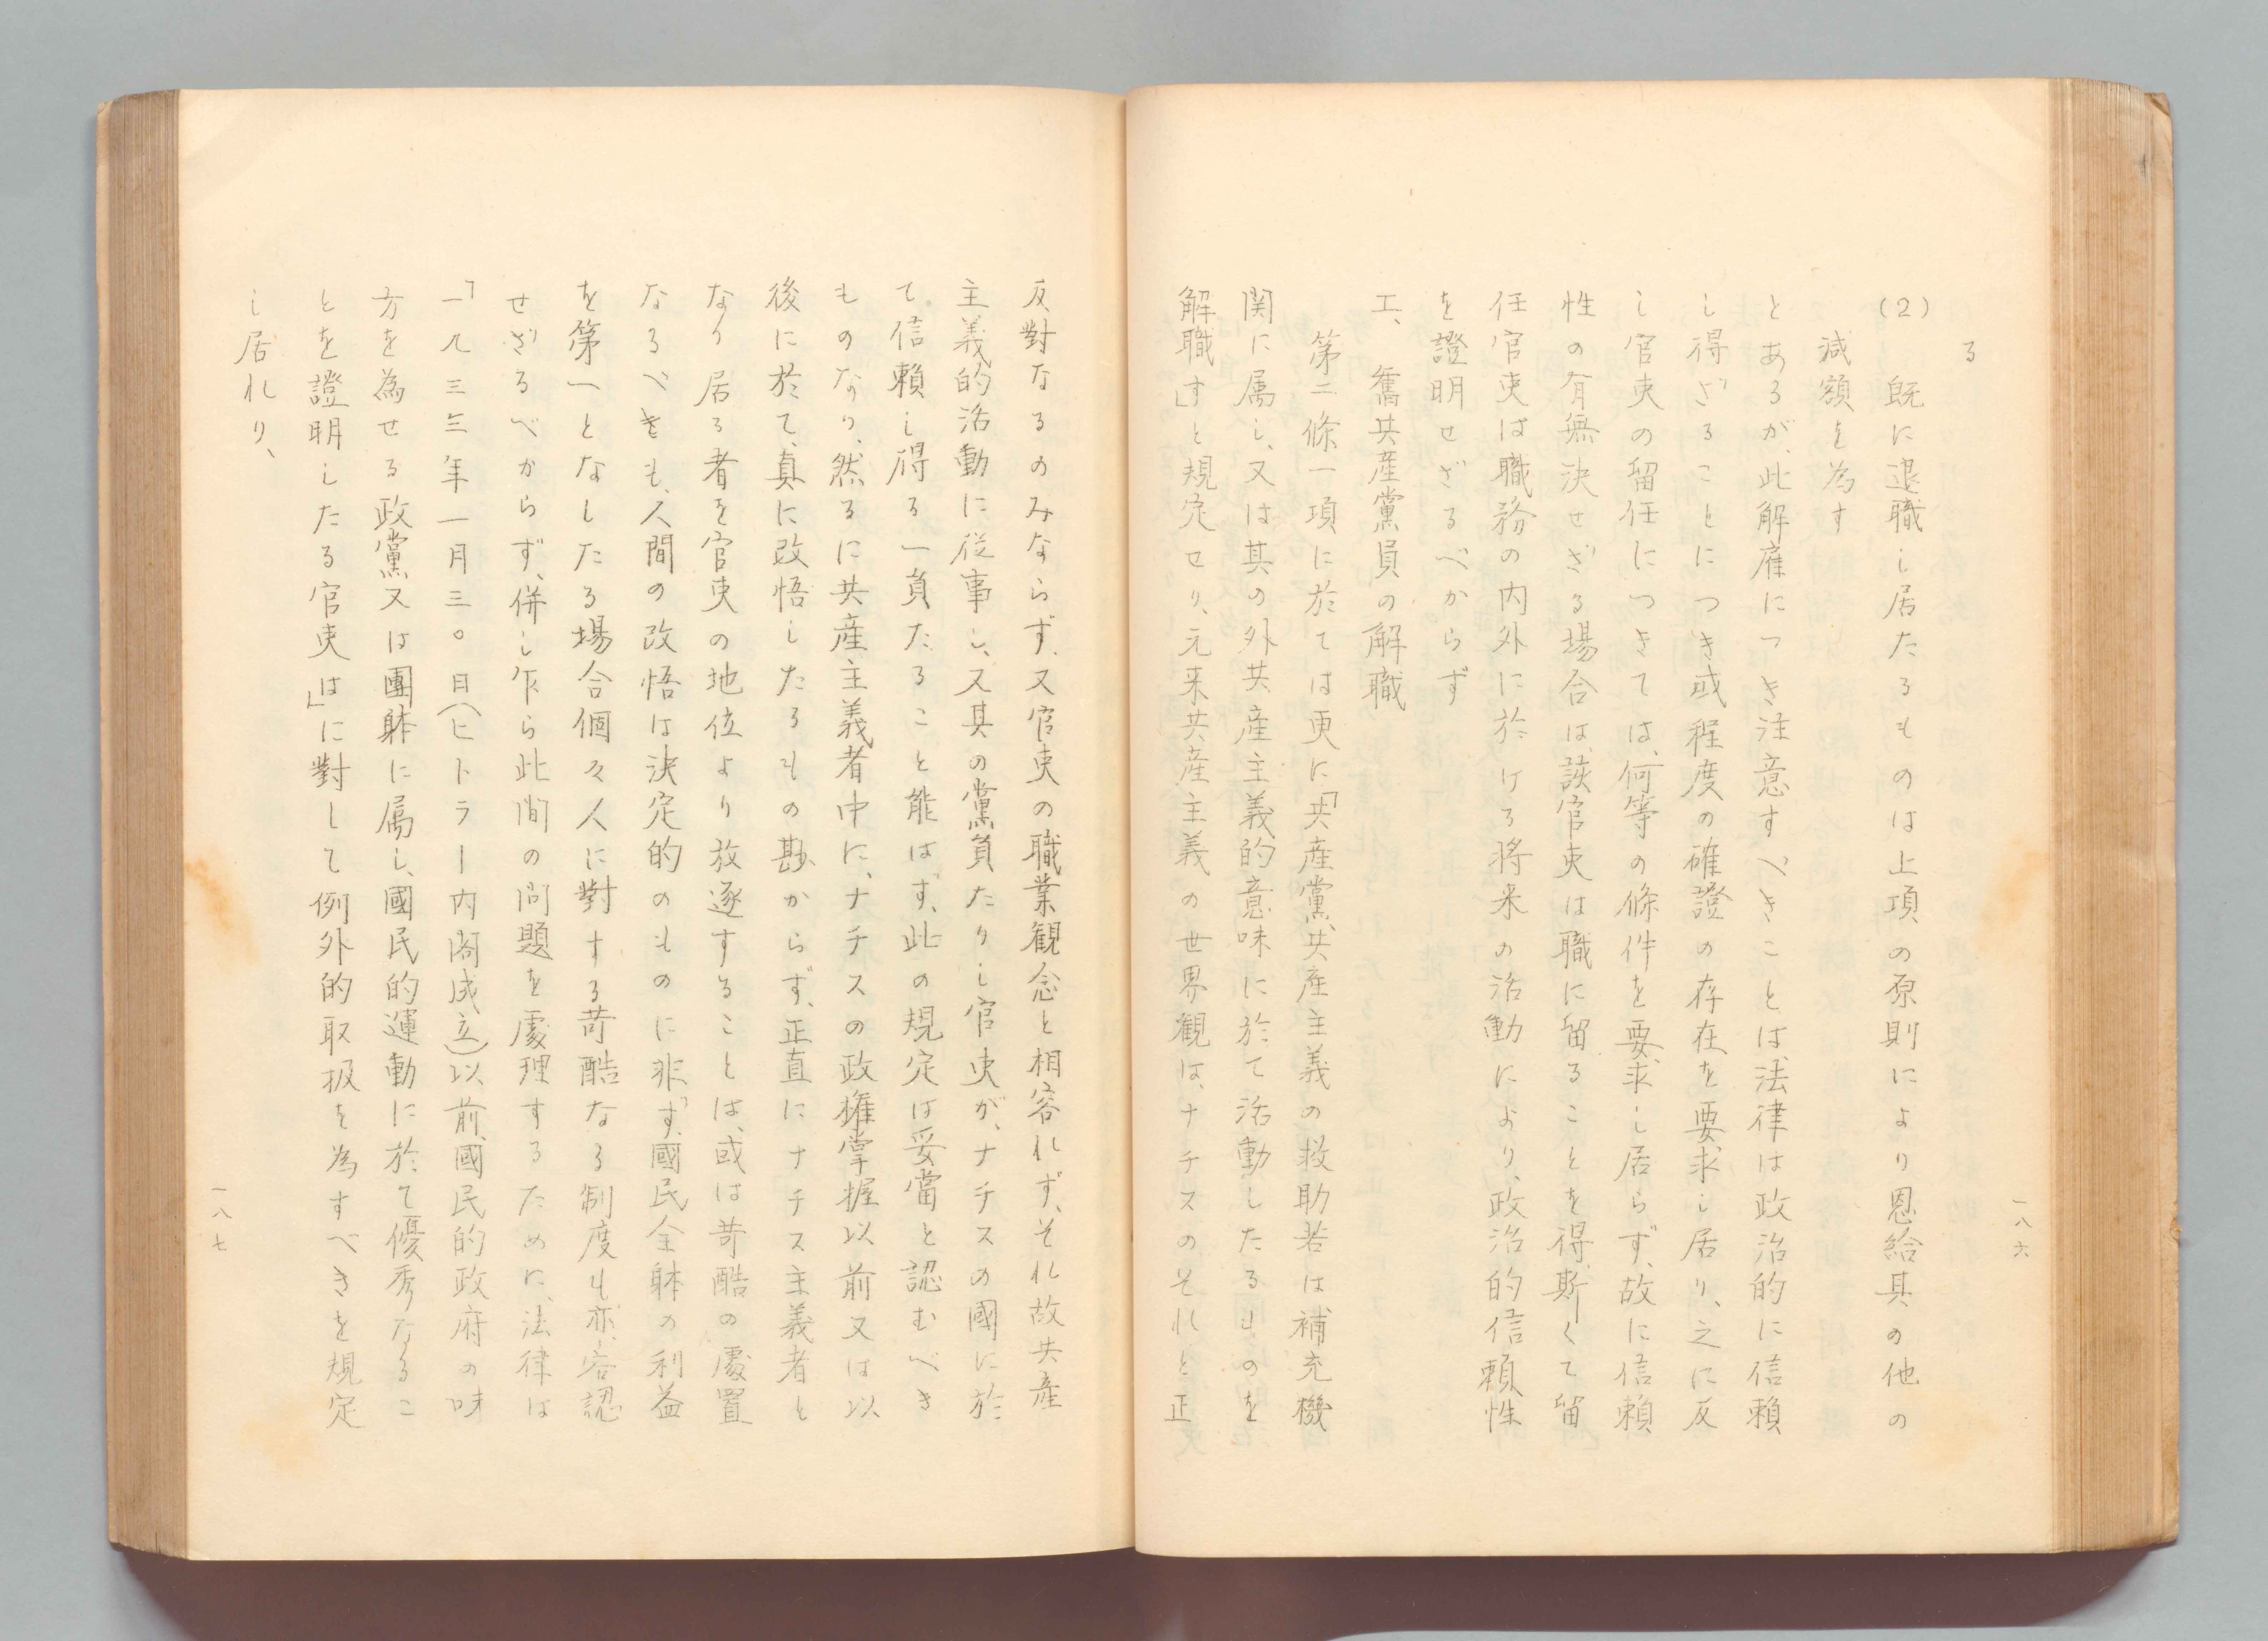 る
(2) 既に退職し居たるものは上項の原則により恩給其の他の
減額を為す
とあるが、此解雇につき注意すべきことは、法律は政治的に信賴
し得ざることにつき或程度の確證の存在を要求し居り、之に反
し官吏の留任につきては、何等の條件を要求し居らず、故に信賴
性の有無決せざる場合は、該官吏は職に留ることを得、斯くて留
任官吏は職務の内外に於ける将来の活動により、政治的信賴性
を證明せざるべからず
エ、舊共産黨員の解職
第二條一項に於ては更に「共産黨、共産主義の救助若は補充機
関に属し、又は其の外共産主義的意味に於て活動したるものを
解職す」と規定せり、元来共産主義の世界観は、ナチスのそれと正
一八六
反對なるのみならず、又官吏の職業観念と相容れず、それ故共産
主義的活動に従事し、又其の黨員たりし官吏が、ナチスの國に於
て信賴し得る一員たること能はず、此の規定は妥當と認むべき
ものなり、然るに共産主義者中に、ナチスの政権掌握以前又は以
後に於て、真に改悟したるもの尠からず、正直にナチス主義者と
なり居る者を官吏の地位より放逐することは、或は苛酷の處置
なるべきも、人間の改悟は決定的のものに非ず、國民全躰の利益
を第一となしたる場合個々人に對する苛酷なる制度も亦、容認
せざるべからず、併し乍ら此間の問題を處理するために、法律は
「一九三三年一月三〇日(ヒトラー内閣成立)以前、國民的政府の味
方を為せる政黨又は團躰に属し、國民的運動に於て優秀なるこ
とを證明したる官吏は」に對して例外的取扱を為すべきを規定
し居れり、
一八七